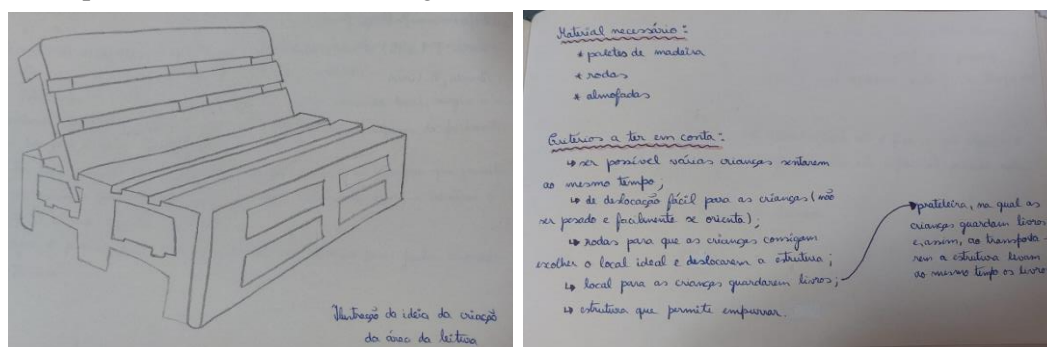 Ilustração da ideia da criação
da área da leitura
Material necessário:
* paletes de madeira
* rodas
* almofadas
Critérios a ter em conta:
↳ ser possível várias crianças sentarem
ao mesmo tempo;
↳ de deslocação fácil para as crianças (não
ser pesado e facilmente se orienta);
↳ rodas para que as crianças consigam
escolher o local ideal e deslocarem a estrutura;
↳ local para as crianças guardarem livros;
↳ estrutura que permite empurrar.
prateleira, na qual as
crianças guardam livros
e, assim, ao transporta-
rem a estrutura levam
ao mesmo tempo os livro